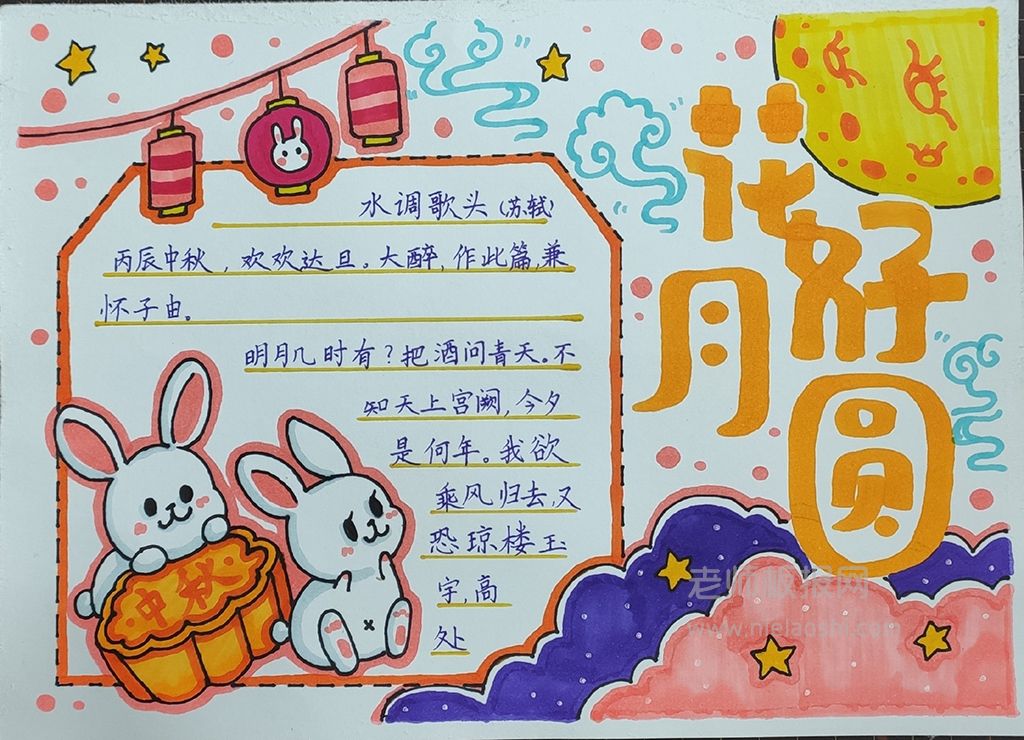 花好月圆
水调歌头(苏轼)
丙辰中秋,欢欢达旦。大醉,作此篇,兼
怀子由。
明月几时有?把酒问青天。不
知天上宫阙,今夕
是何年。我欲
乘风归去,又
恐琼楼玉
宇,高
处
中秋
老师板报网
www.nielaoshi.com